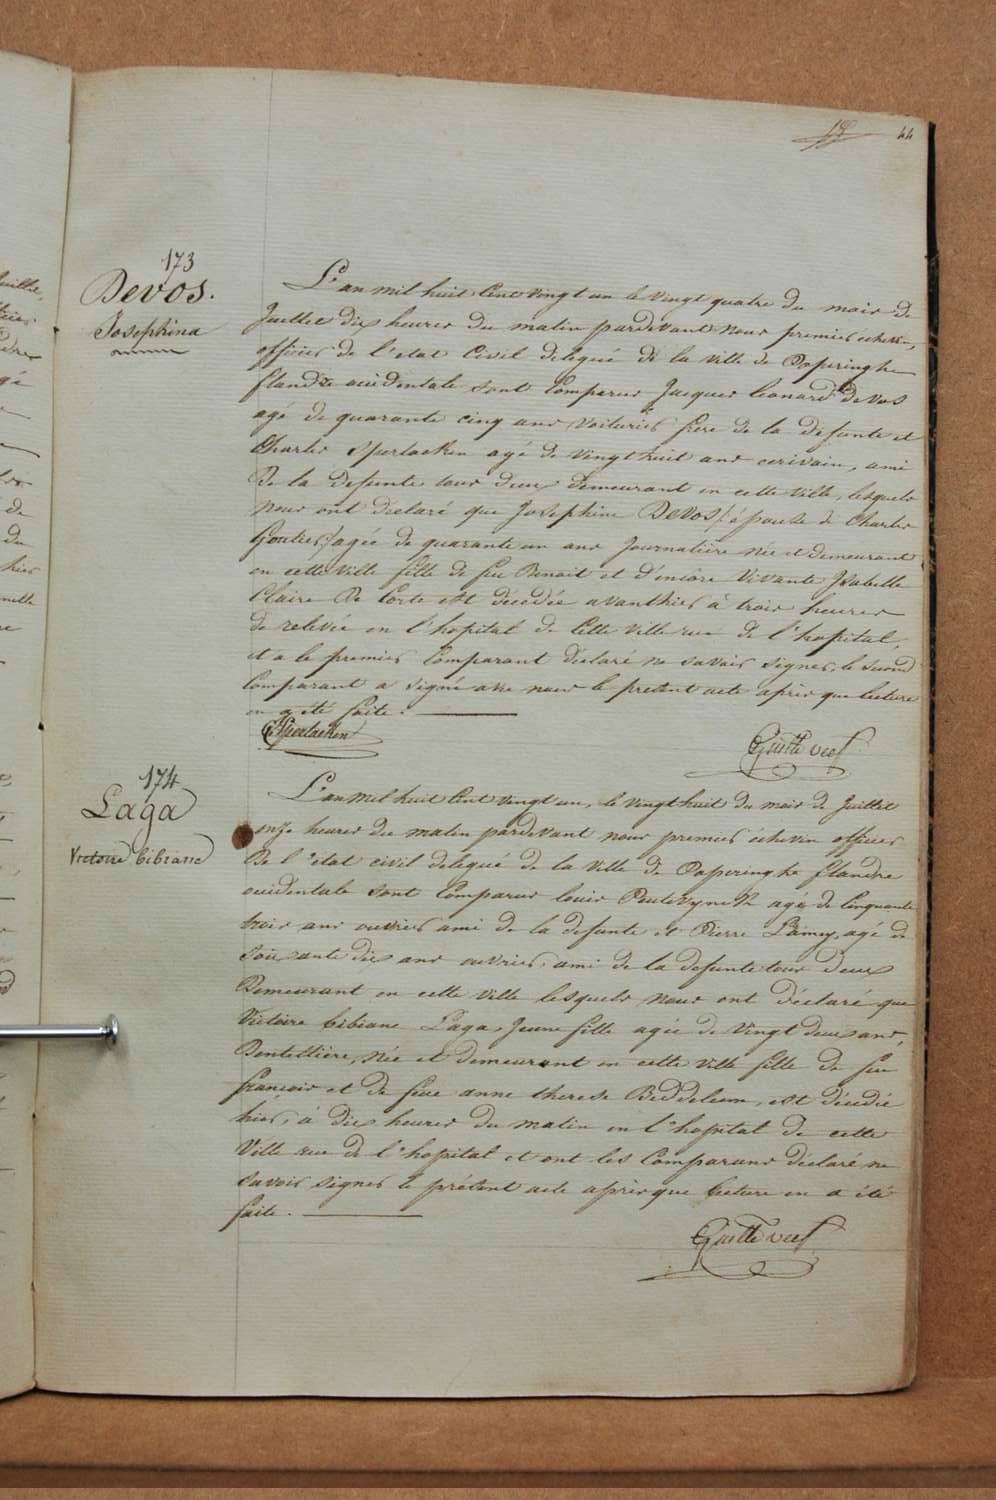 44
173
Devos.
Josephina
L'an mil huit Cent vingt un le vingt quatre du mois de
Juillet dix heures du matin pardevant nous premier échevin,
officier de l'état Civil delegué de la ville de Poperinghe
flandre occidentale sont Comparus Jacques leonard de vos
agé de quarante cinq ans voiturier frere de la défunte et
Charles Sperlaeken agé de vingt huit ans ecrivain, ami
De la defunte tous deux demeurant en cette ville, lesquels
nous ont déclaré que Josephine Devos épouse de Charles
agée de quarante un ans Journaliere née et demeurant
en cette ville fille de feu Benoit et d'encore vivante Isabelle
Claire De Corte est décédée avanthier à trois heures
de relevée en l'hopital de Cette ville rue de l'hopital,
et a le premier Comparant déclaré ne savoir signer, le second
Comparant a signé avec nous le present acte après que lecture
en a été faite.
CSperlaeken
174
Laga
Victoire bibiane
L'an mil huit Cent vingt un, le vingt huit du mois de Juillet
onze heures du matin pardevant nous premier échevin officier
De l'état civil delegué de la ville de Poperinghe flandre
occidentale sont Comparus louis agé de Cinquante
trois ans ouvrier ami de la defunte et Pierre Lamey, agé de
soixante dix ans ouvrier, ami de la defunte tous deux
Demeurant en cette ville lesquels nous ont déclaré que
Victoire bibiane Laga, Jeune fille agée de vingt deux ans,
Dentelliere, née et demeurant en cette ville fille de feu
françois et de feue anne therese Beddeleem, est décédée
hier, à dix heures du matin en l'hopital de cette
Ville rue de l'hopital et ont les Comparans déclaré ne
savoir signer le présent acte après que lecture en a été
faite.